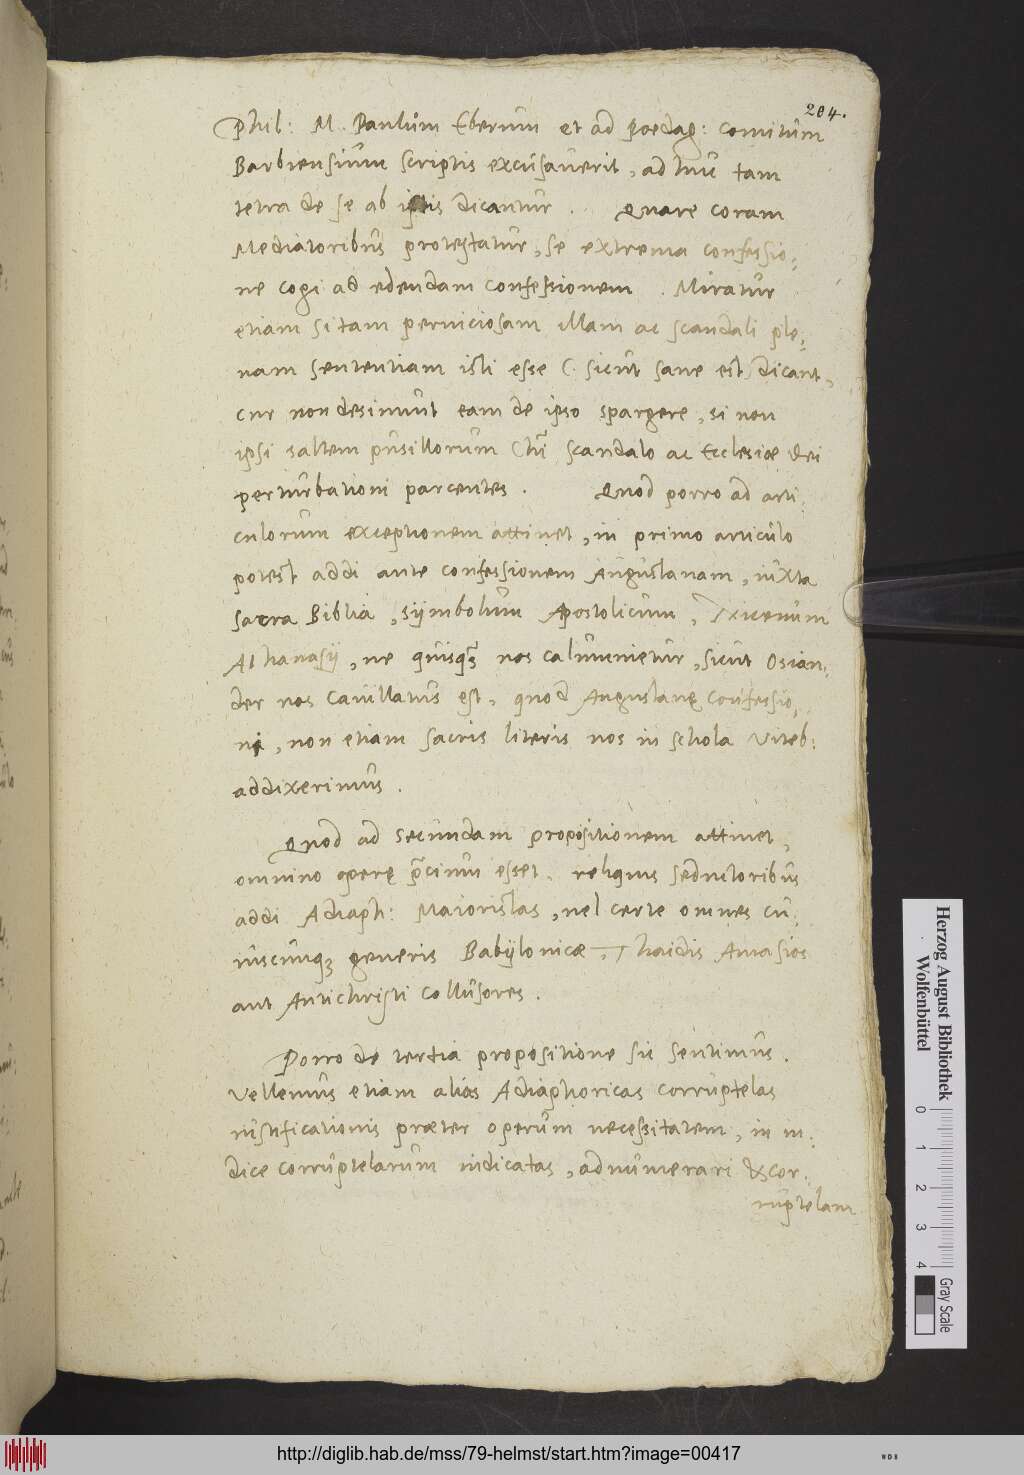 204.
Phil: M. Paulum Eberum et ad paedag: comitum
Barbiensium scriptis excusaverit, adhuc tam
tetra de se ab istis dicantur. Quare coram
Mediatoribus protestatur, se extrema confessio-
ne cogi ad edendam confessionem. Miratur
etiam si tam perniciosam illam ac scandali ple-
nam sententiam isti esse (sicut sane est) dicant,
cur non desinunt eam de ipso spargere, si non
ipsi saltem pusillorum Chri scandalo ac Ecclesiae Dei
perturbationi parcentes. Quod porro ad arti-
culorum exceptionem attinet, in primo articulo
potest addi ante confessionem Augustanam, iuxta
sacra Biblia, symbolum Apostolicum, Nicenum
Athanasij, ne quisq3 nos calumnietur, sicut Osian-
der nos cavillatus est, quod Augustanę confessio-
ni, non etiam sacris literis nos in schola Viteb:
addixerimus.
Quod ad secundam propositionem attinet,
omnino operę precium esset, reliquis seductoribus
addi Adiaph: Maioristas, vel certe omnes cu-
iuscunq3 generis Babylonicae Thaidis Amasios
aut Antichristi collusores.
Porro de tertia propositione sic sentimus.
Vellemus etiam alias Adiaphoricas corruptelas
iustificationis praeter operum necessitatem, in in-
dice corruptelarum indicatas, adnumerari & cor-
ruptelam
Herzog August Bibliothek
Wolfenbüttel
0 1 2 3 4
Gray Scale
http://diglib.hab.de/mss/79-helmst/start.htm?image=00417